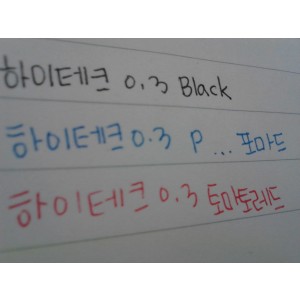 하이테크 0.3 Black
하이테크 0.3 P... 포마드
하이테크 0.3 토마토레드